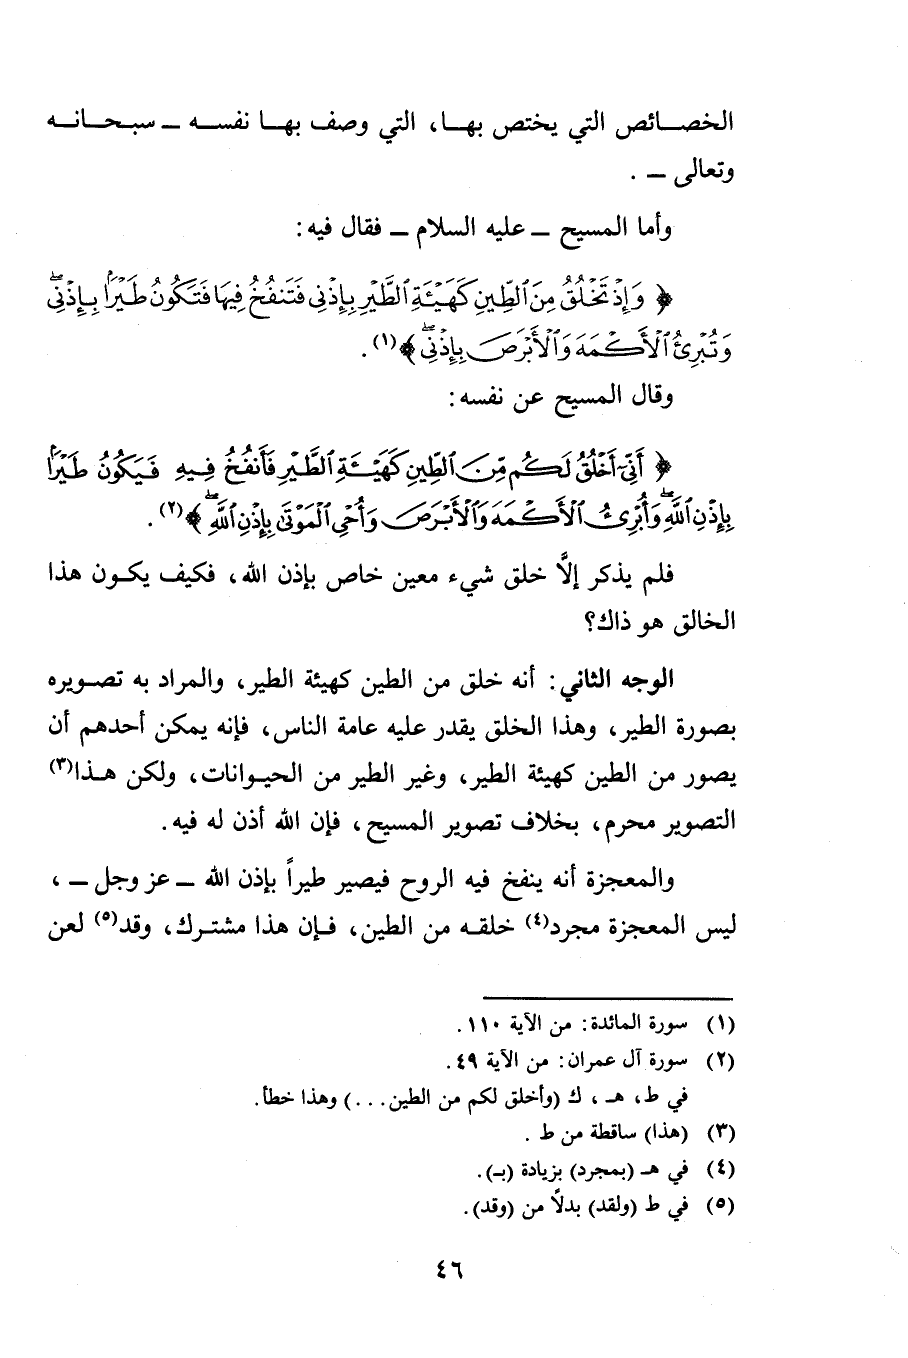 الخصائص التي يختص بها، التي وصف بها نفسه – سبحانه
وتعالى – .
وأما المسيح – عليه السلام – فقال فيه:
﴿ وَإِذْ تَخْلُقُ مِنَ ٱلطِّينِ كَهَيْـَٔةِ ٱلطَّيْرِ بِإِذْنِى فَتَنفُخُ فِيهَا فَتَكُونُ طَيْرًۢا بِإِذْنِىۖ
وَتُبْرِئُ ٱلْأَكْمَهَ وَٱلْأَبْرَصَ بِإِذْنِىۖ ﴾(١).
وقال المسيح عن نفسه:
﴿ أَنِّىٓ أَخْلُقُ لَكُم مِّنَ ٱلطِّينِ كَهَيْـَٔةِ ٱلطَّيْرِ فَأَنفُخُ فِيهِ فَيَكُونُ طَيْرًۢا
بِإِذْنِ ٱللَّهِۖ وَأُبْرِئُ ٱلْأَكْمَهَ وَٱلْأَبْرَصَ وَأُحْىِ ٱلْمَوْتَىٰ بِإِذْنِ ٱللَّهِۖ ﴾(٢).
فلم يذكر إلاَّ خلق شيء معين خاص بإذن الله، فكيف يكون هذا
الخالق هو ذاك؟
الوجه الثاني: أنه خلق من الطين كهيئة الطير، والمراد به تصويره
بصورة الطير، وهذا الخلق يقدر عليه عامة الناس، فإنه يمكن أحدهم أن
يصور من الطين كهيئة الطير، وغير الطير من الحيوانات، ولكن هذا(٣)
التصوير محرم، بخلاف تصوير المسيح، فإن الله أذن له فيه.
والمعجزة أنه ينفخ فيه الروح فيصير طيراً بإذن الله – عز وجل – ،
ليس المعجزة مجرد(٤) خلقه من الطين، فإن هذا مشترك، وقد(٥) لعن
(١) سورة المائدة: من الآية ١١٠.
(٢) سورة آل عمران: من الآية ٤٩.
في ط، هـ، ك (وأخلق لكم من الطين...) وهذا خطأ.
(٣) (هذا) ساقطة من ط .
(٤) في هـ (بمجرد) بزيادة (بـ).
(٥) في ط (ولقد) بدلاً من (وقد).
٤٦